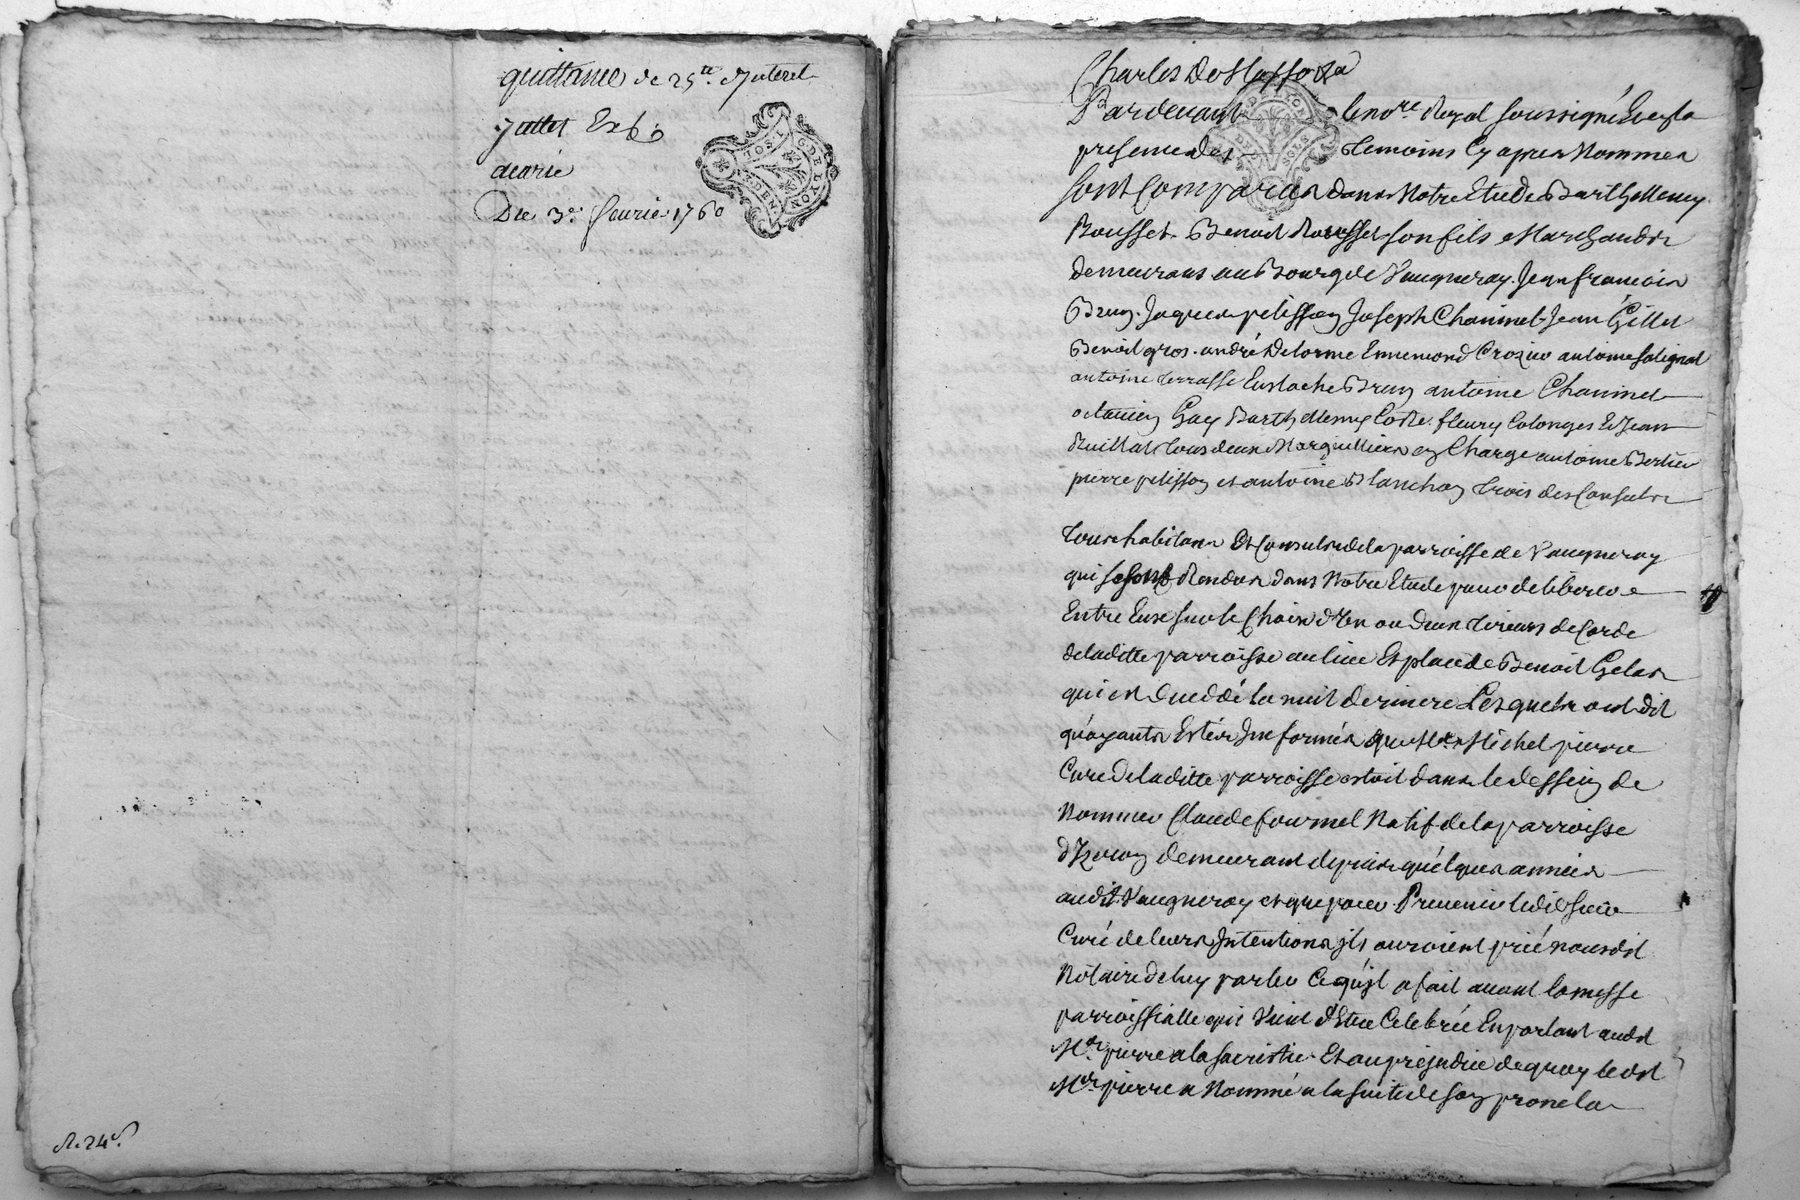 quittance de 25tt. d'Interet
Juillet
Du 3e. feurie 1760
GDE LYON
R. 24s.
Pardeuant le nore Royal soussigné Et en la
presence des Temoins Cy apres Nommes
sont Comparus dans Notre Etude Barthelemy
Rousset. Benoit Rousset son fils Marchands
demeurans au Bourg de Vaugneray. Jean francois
Brun. Jaques pelisson Joseph Chaninel Jean Gillet
Benoit gros. andré Delorme Ennemond Crozier antoine Salignat
antoine terrasse Eustache Brun antoine Chaninel
octauien Gay Barthelemy Coste. fleury Colonges Et Jean
Ruillat tous deux Marguilliers en Charge antoine Bertier
pierre pelisson et antoine Blanchon trois des Consuls
tous habitans Et Consuls de la parroisse de Vaugneray
qui se sont Rendus dans Notre Etude pour deliberer
Entre Eux sur le Choix d'Un ou Deux tireurs de Corde
de laditte parroisse au lieu Et place de Benoit Gelas
qui est Decedé la nuit derniere Lesquels ont dit
qu'ayants Estés Informés que Mr Michel pierre
Curé de laditte parroisse estoit dans le dessein de
Nommer Claude fournel Natif de la parroisse
d'Izeron demeurant depuis quelques années
audit Vaugneray et que pour Preuenir ledit sieur
Curé de leurs Intentions ils auroient prié nousdit
Notaire de luy parler Ce qu'il a fait auant la messe
parroissialle qui Vient d'Etre Celebrée En parlant audit
Mre pierre a la sacristie Et au prejudice de quoy ledit
Mre pierre a Nommé a la suite de son prone la